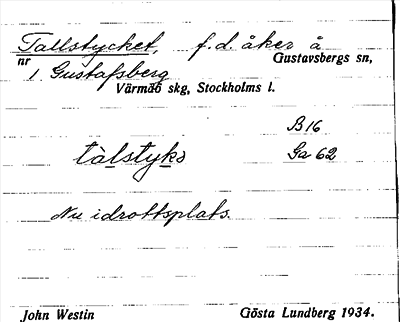 Tallstycket, f.d. åker å
nr 1 Gustafsberg Gustavsbergs sn,
Värmdö skg, Stockholms l.
B 16
tàlstykə Ga 62
Nu idrottsplats.
John Westin Gösta Lundberg 1934.